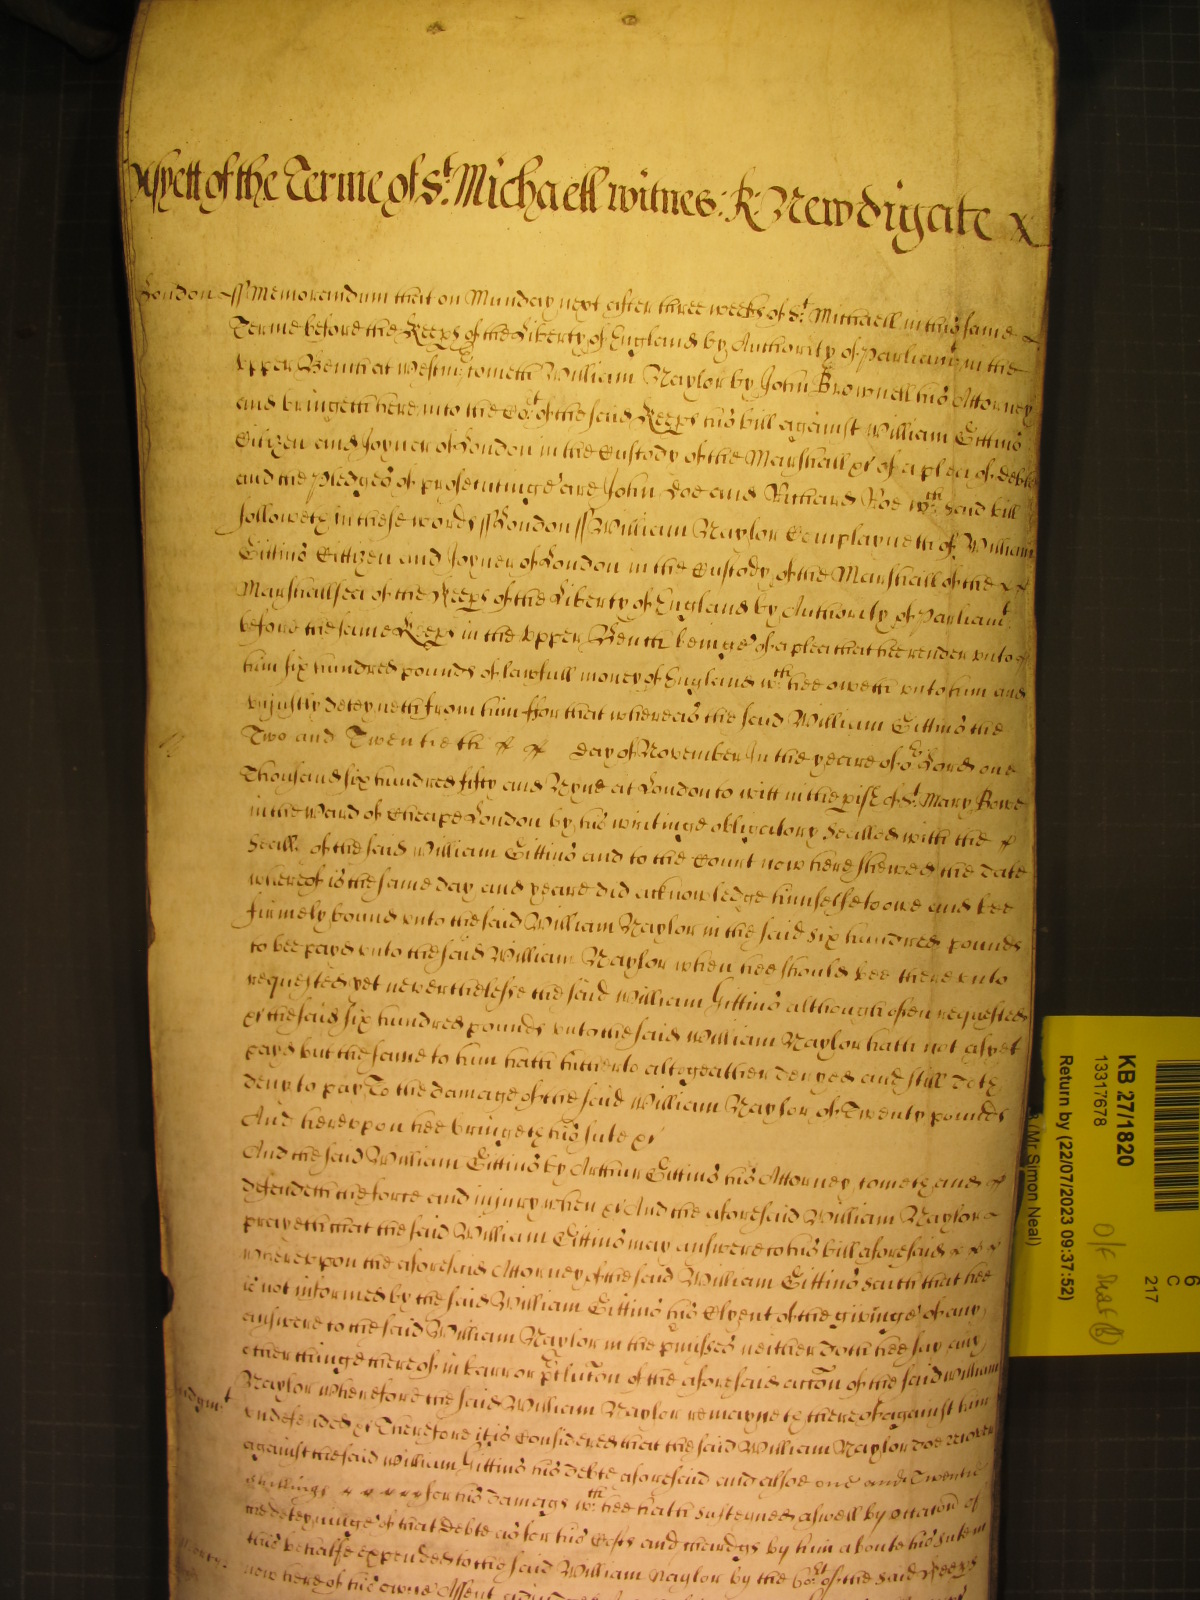 As yett of the Terme of St. Michaell witnes: R: Newdigate x
London ss Memorandum that on Munday next after three weeks of St. Michaell in this same
Terme before the Keeps of the Liberty of England by Authority of Parliamt. in the
Upper Bench at Westmr. cometh William Naylor by John Brownell his Attorney
and bringeth here into the Cot. of the said Keeps his bill against William Gittins
Citizen and Joyner of London in the Custody of the Marshall &c of a plea of debte
and the Pledges of prosecutinge are John Doe and Richard Roe wth. said bill
followeth in these words ss London ss William Naylor Complayneth of William
Gittins Cittizen and Joyner of London in the Custody of the Marshall of the
Marshallsea of the Keeps of the Liberty of England by Authority of Parliamt.
before the same Keeps in the Upper Bench beinge of a plea that hee render unto
him six hundred pounds of lawfull money of England wth. hee oweth unto him and
unjustly deteyneth from him ffor that whereas the said William Gittins the
Two and Twentieth day of November In the yeare of or. Lord one
Thousand six hundred fifty and Nyne at London to witt in the pish of St. Mary Bowe
in the Ward of Cheape London by his writinge obligatory sealled with the
Seale of the said William Gittins and to the Court now here shewed the date
whereof is the same day and yeare did acknowledge himselfe to owe and bee
firmely bound unto the said William Naylor in the said six hundred pounds
to bee payd unto the said William Naylor when hee should bee thereunto
requested yet neverthelesse the said William Gittins although often requested
&c the said six hundred pounds unto the said William Naylor hath not as yet
payd but the same to him hath hitherto altogeather denyed and still doth
deny to pay To the damage of the said William Naylor of Twenty pounds
And hereupon hee bringeth his sute &c
And the said William Gittins by Arthur Gittins his Attorney cometh and
defendeth the force and injury when &c And the aforesaid William Naylor
prayeth that the said William Gittins may answere to his bill aforesaid
Whereupon the aforesaid Attorney of the said William Gittins saith that hee
is not informed by the said William Gittins his Clyent of the givinge of any
answere to the said William Naylor in the pmisses neither doth hee say any
other thinge thereof in barr or pclusion of the aforesaid accon of the said William
Naylor wherefore the said William Naylor remayneth thereof against him
undefended &c Therefore it is Considered that the said William Naylor doe recover
Judgmt.
against the said William Gittins his debte aforesaid and alsoe one and Twentie
shillings for his damags wth. hee hath susteyned aswell by occacon of
the deteyninge of that debte as for his Costs and chardgs by him aboute his sute in
this behalfe expended to the said William Naylor by the Cot. of the said Keeps
now here of his owne Assent
KB 27/1820
13317678
Return by (22/07/2023 09:37:52)
(Mr Simon Neal)
6
C
217